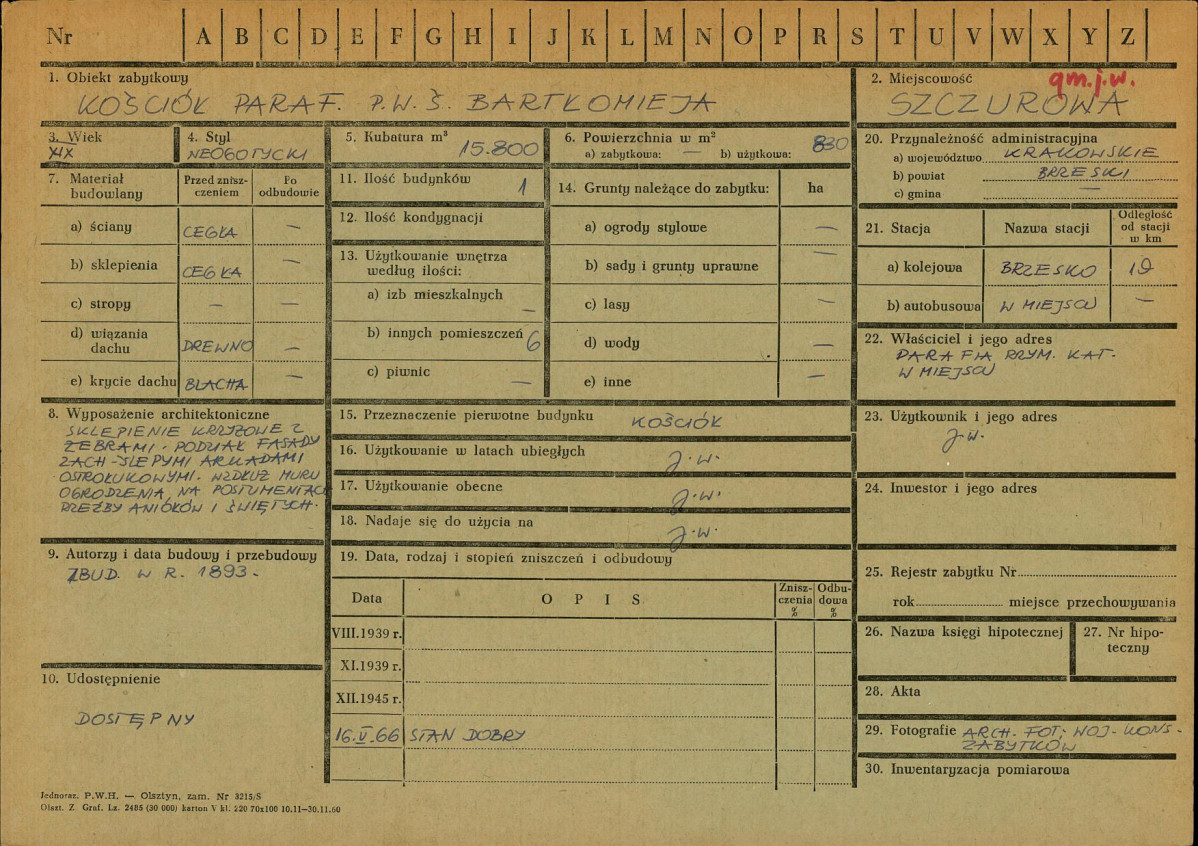 Nr A B C D E F G H I J K L M N O P R S T U V W X Y Z
1. Obiekt zabytkowy
KOŚCIÓŁ PARAF. P.W.Ś. BARTŁOMIEJA
2. Miejscowość
qm.j.w.
SZCZUROWA
3. Wiek
XIX
4. Styl
NEOGOTYCKI
5. Kubatura m³
15.800
6. Powierzchnia w m²
a) zabytkowa: — b) użytkowa: 830
7. Materiał budowlany
Przed zniszczeniem
Po odbudowie
a) ściany CEGŁA —
b) sklepienia CEGŁA —
c) stropy — —
d) wiązania dachu DREWNO —
e) krycie dachu BLACHA —
8. Wyposażenie architektoniczne
SKLEPIENIE KRZYŻOWE Z
ŻEBRAMI. PODZIAŁ FASADY
ZACH-ŚLEPYMI ARKADAMI
OSTROŁUKOWYMI. WZDŁUŻ MURU
OGRODZENIA, NA POSTUMENTACH
RZEŹBY ANIOŁÓW I ŚWIĘTYCH.
9. Autorzy i data budowy i przebudowy
ZBUD. W R. 1893.
10. Udostępnienie
DOSTĘPNY
11. Ilość budynków 1
12. Ilość kondygnacji
13. Użytkowanie wnętrza
według ilości:
a) izb mieszkalnych —
b) innych pomieszczeń 6
c) piwnic —
14. Grunty należące do zabytku: ha
a) ogrody stylowe —
b) sady i grunty uprawne —
c) lasy —
d) wody —
e) inne —
15. Przeznaczenie pierwotne budynku KOŚCIÓŁ
16. Użytkowanie w latach ubiegłych j.w.
17. Użytkowanie obecne j.w.
18. Nadaje się do użycia na j.w.
19. Data, rodzaj i stopień zniszczeń i odbudowy
Data OPIS Zniszczenia % Odbudowa %
VIII.1939 r.
XI.1939 r.
XII.1945 r.
16.V.66 STAN DOBRY
20. Przynależność administracyjna
a) województwo KRAKOWSKIE
b) powiat BRZESKI
c) gmina —
21. Stacja Nazwa stacji Odległość od stacji w km
a) kolejowa BRZESKO 19
b) autobusowa W MIEJSCU —
22. Właściciel i jego adres
PARAFIA RZYM. KAT.
W MIEJSCU
23. Użytkownik i jego adres
j.w.
24. Inwestor i jego adres
25. Rejestr zabytku Nr
rok miejsce przechowywania
26. Nazwa księgi hipotecznej
27. Nr hipoteczny
28. Akta
29. Fotografie ARCH. FOT. WOJ. KONS.
ZABYTKÓW
30. Inwentaryzacja pomiarowa
Jednoraz. P.W.H. — Olsztyn, zam. Nr 3215/S
Olszt. Z. Graf. Lz. 2485 (30 000) karton V kl. 220 70x100 10.11—30.11.60